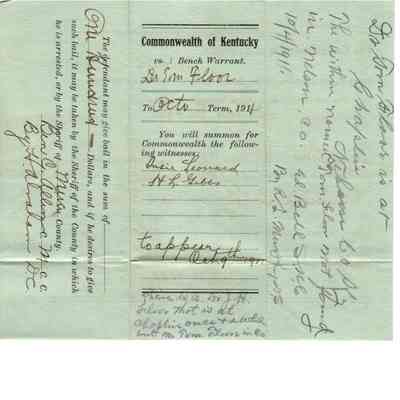 The defendant may give bail in the sum of
One Hundred Dollars, and if he desires to give
such bail, it may be taken by the Sheriff of the County in which
he is arrested, or by the Sheriff of Mercer County.
Ben C. Allin C. M. C. C.
By H Abraham DC
Commonwealth of Kentucky
vs. } Bench Warrant.
Dr Tom Floor
To Octo Term, 1911
You will summon for
Commonwealth the follow-
ing witnesses
Susie Leonard
H L
to appear
Oct 9th 1911
There is a
Floor that is at
Chaplin once a week
but no Tom Floor in Co
Dr Tom Floor is at
Chaplin
Nelson Co Ky
The within named Tom Floor not found
in Nelson Co.
10/4/1911